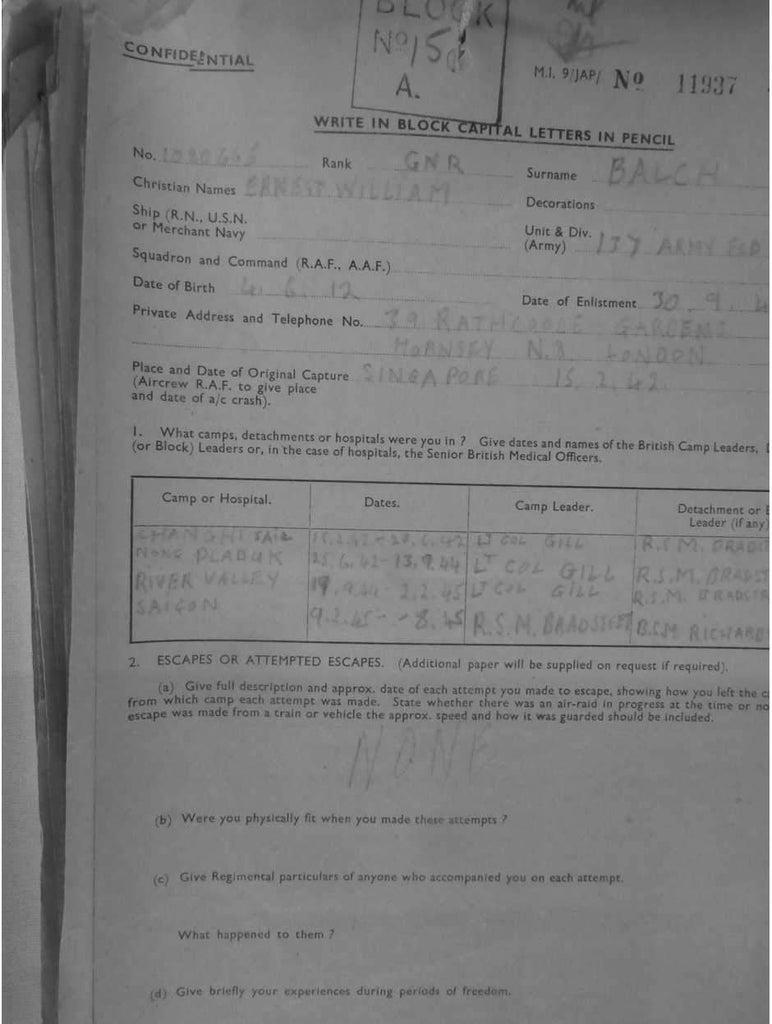 BLOCK
No 15
A.
CONFIDENTIAL
M.I. 9/JAP/ No 11937
WRITE IN BLOCK CAPITAL LETTERS IN PENCIL
No. Rank GNR Surname BALCH
Christian Names ERNEST WILLIAM Decorations
Ship (R.N., U.S.N.
or Merchant Navy
Unit & Div.
(Army) 137 ARMY FLD
Squadron and Command (R.A.F., A.A.F.)
Date of Birth 4. 6. 12 Date of Enlistment 30. 9. 4
Private Address and Telephone No. 39 RATHCOOLE GARDENS
HORNSEY N.8. LONDON
Place and Date of Original Capture SINGAPORE 15. 2. 42.
(Aircrew R.A.F. to give place
and date of a/c crash).
1. What camps, detachments or hospitals were you in ? Give dates and names of the British Camp Leaders,
(or Block) Leaders or, in the case of hospitals, the Senior British Medical Officers.
Camp or Hospital. Dates. Camp Leader. Detachment or
Leader (if any)
LT COL GILL R.S.M.
NONG PLADUK 25.6.42-13.9.44 LT COL GILL R.S.M.
RIVER VALLEY 19.9.44-2.2.45 LT COL GILL R.S.M.
SAIGON 9.2.45--8.45 R.S.M. B.S.M. RICHARD
2. ESCAPES OR ATTEMPTED ESCAPES. (Additional paper will be supplied on request if required).
(a) Give full description and approx. date of each attempt you made to escape, showing how you left the c
from which camp each attempt was made. State whether there was an air-raid in progress at the time or no
escape was made from a train or vehicle the approx. speed and how it was guarded should be included.
NONE
(b) Were you physically fit when you made these attempts ?
(c) Give Regimental particulars of anyone who accompanied you on each attempt.
What happened to them ?
(d) Give briefly your experiences during periods of freedom.